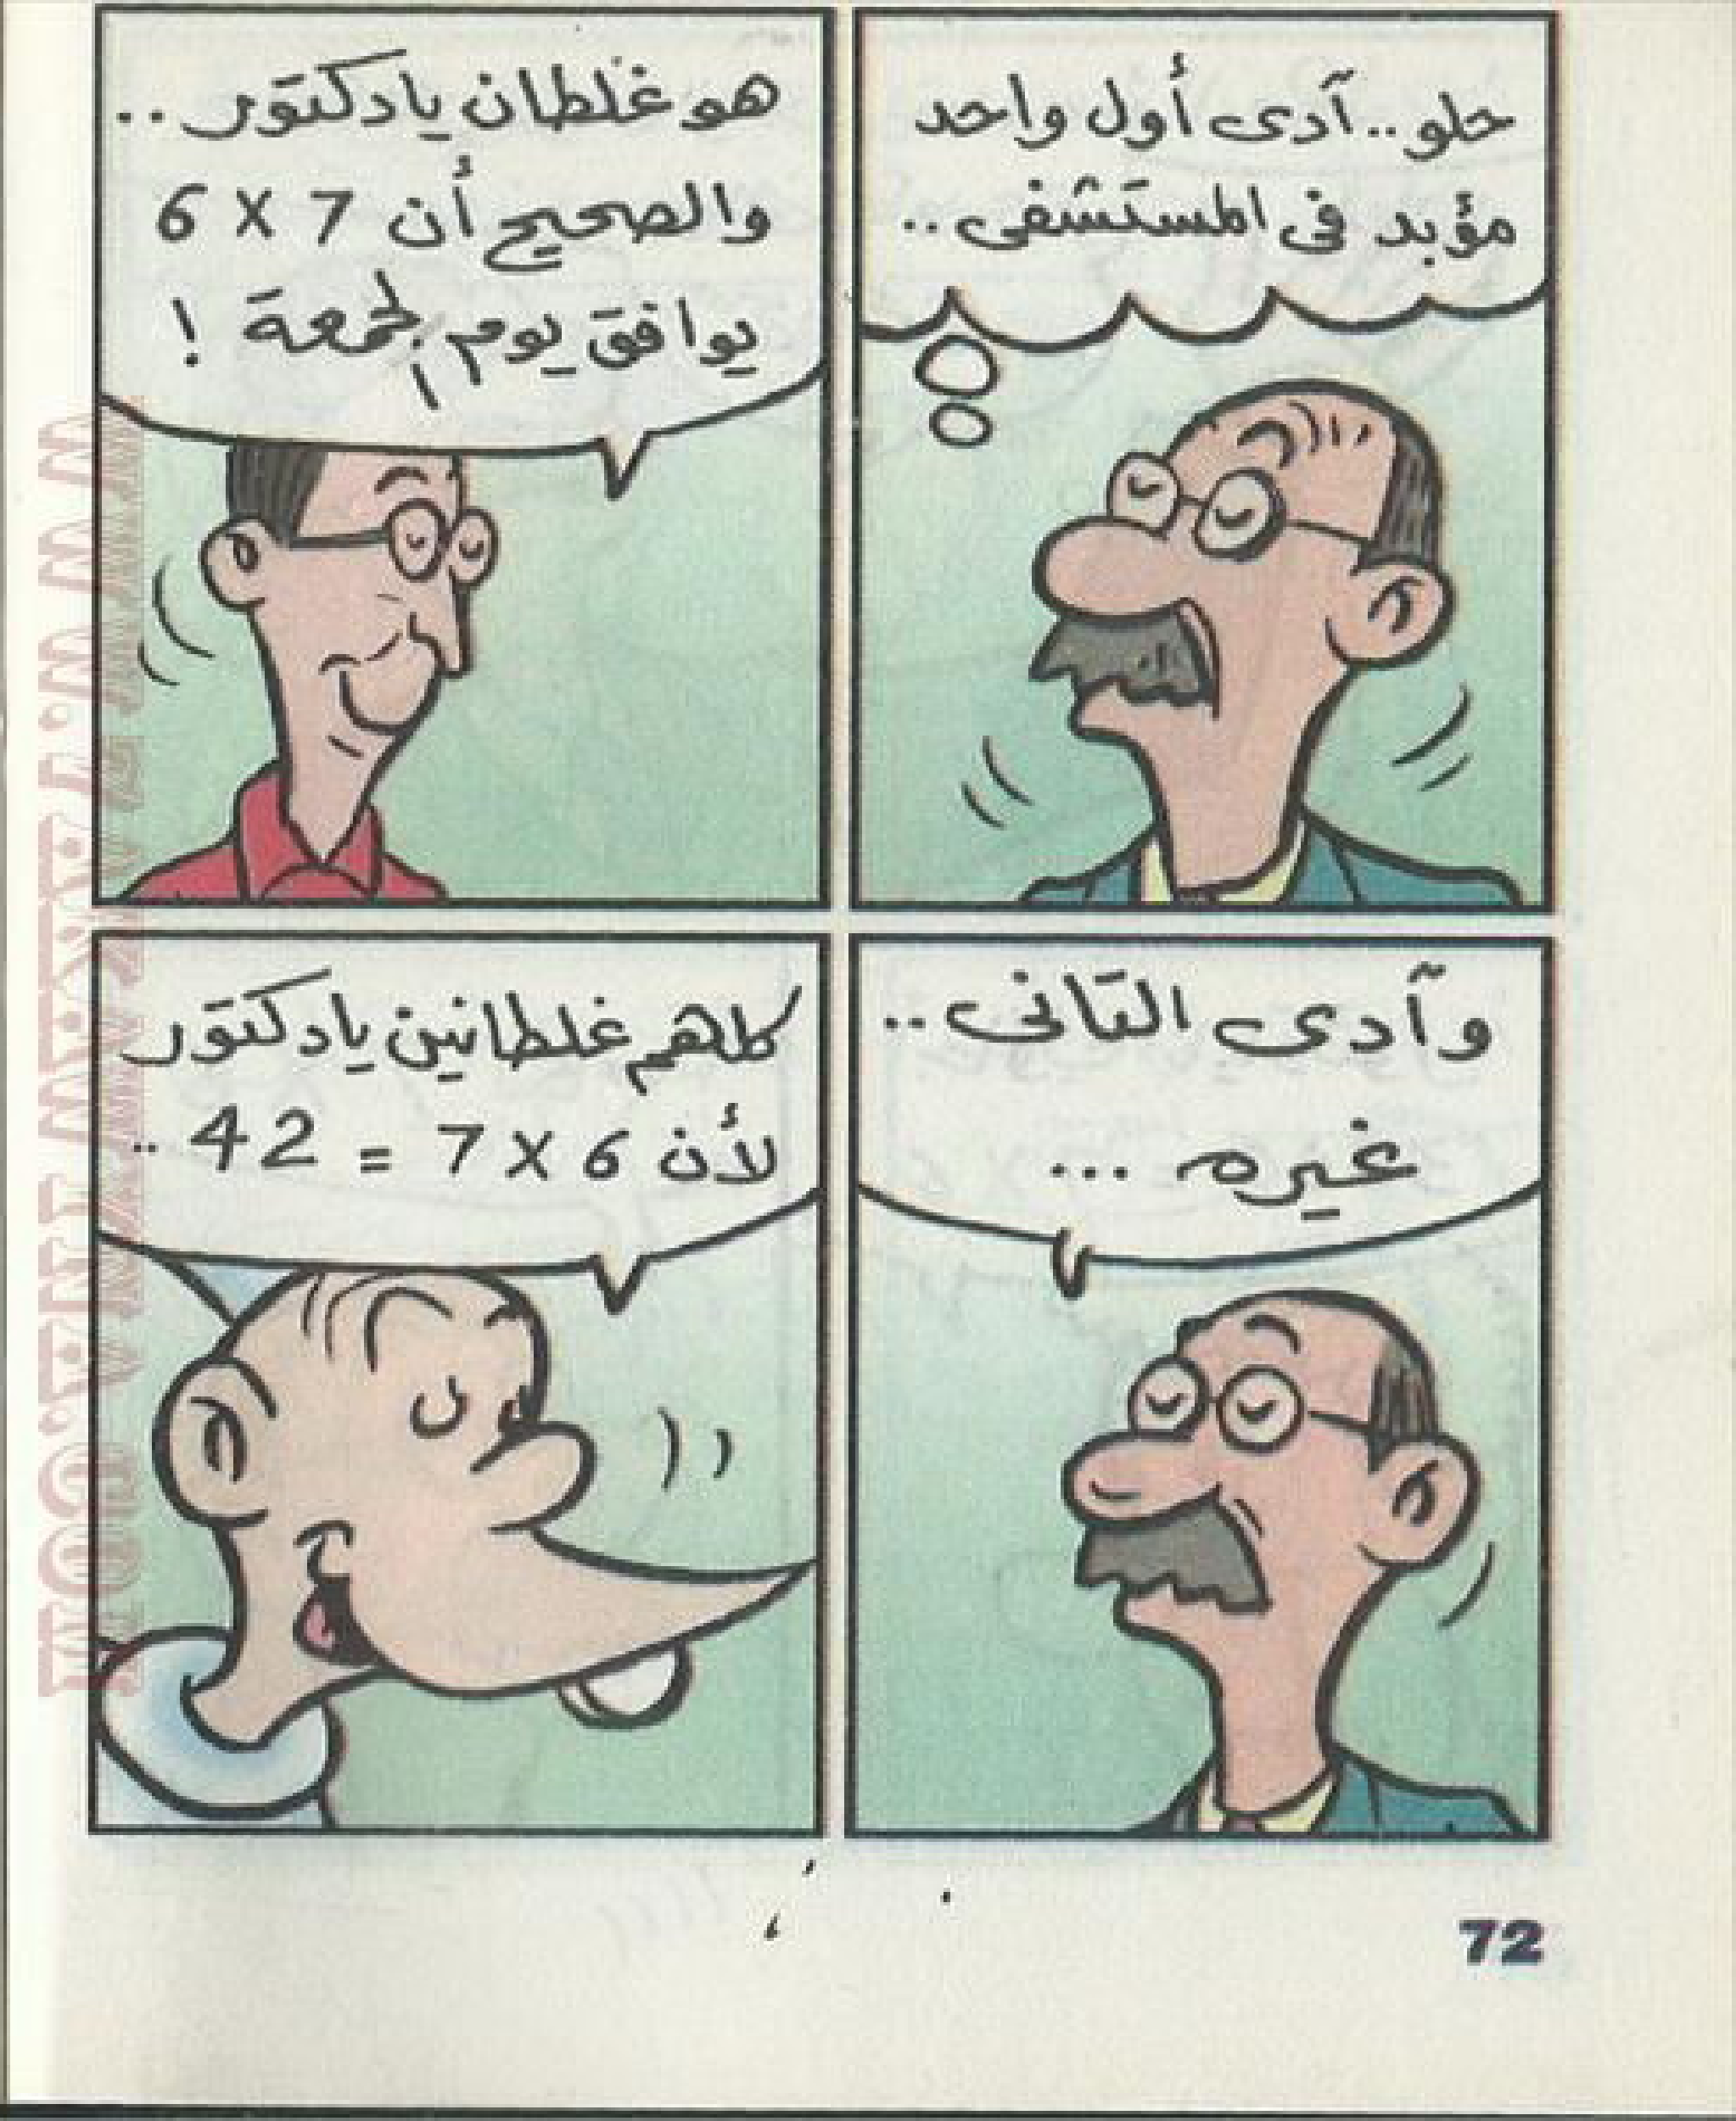 حلو.. آدى أول واحد
مؤبد فى المستشفى..
هو غلطان يا دكتور..
والصحيح أن 7 X 6
يوافق يوم الجمعة !
وآدى التانى..
غيره ...
كلهم غلطانين يا دكتور
لأن 6 X 7 = 42 ..
72